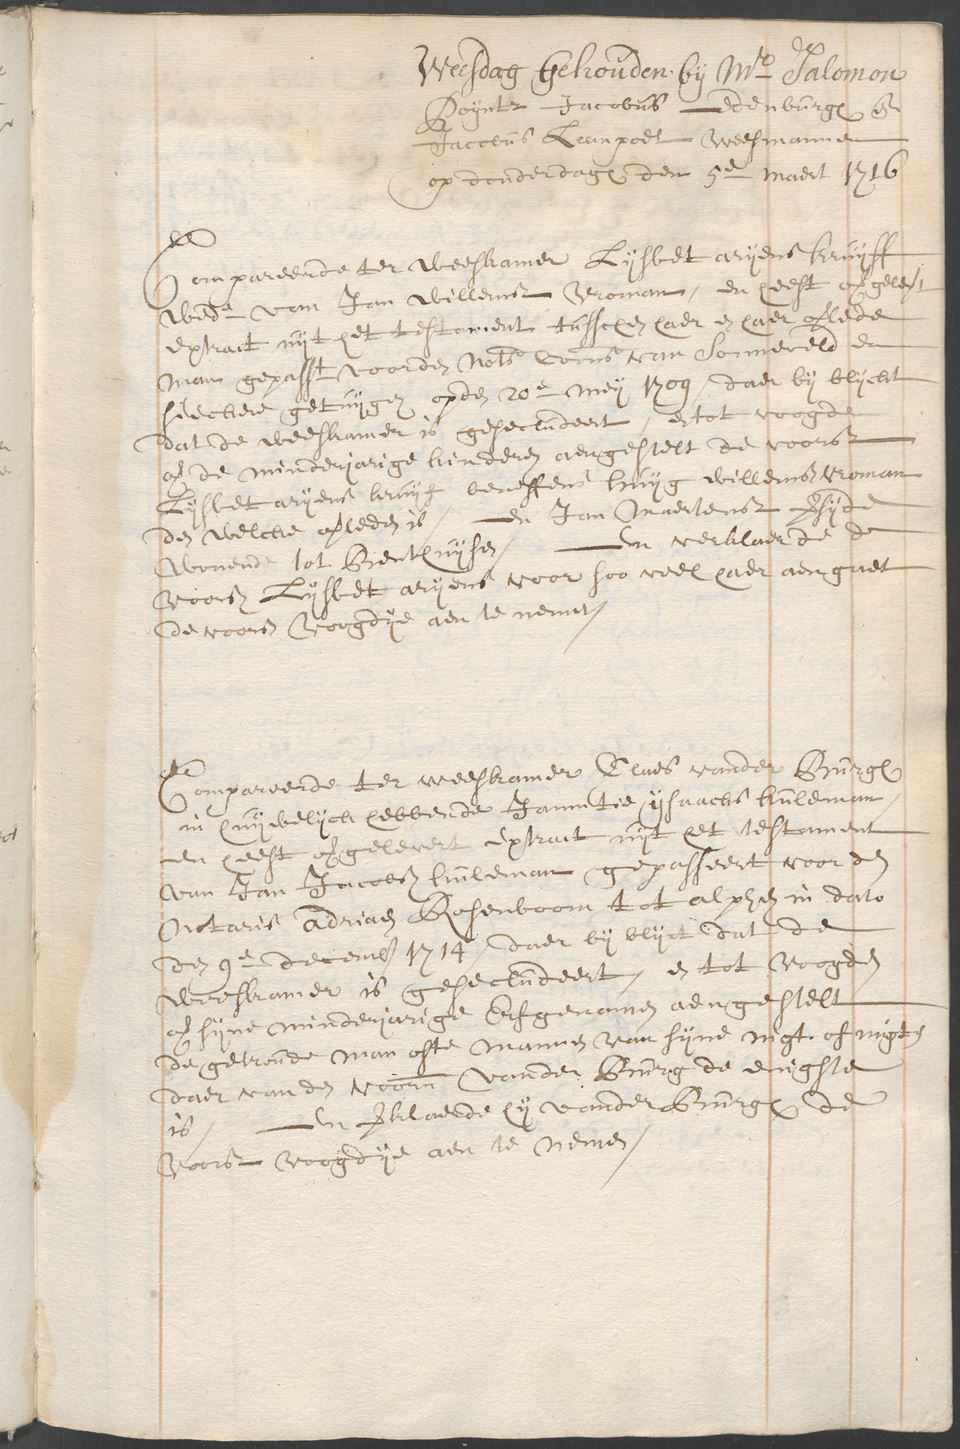 Weesdag gehouden by Mr. Salomon
Poynte Jacobus Edenburgh &
Jacobus Leempoel Weesmannen
op donderdagh den 5e maert 1716
Compareerde ter weeskamer Lysbet aryens kruyff
wede van Jan Willemsz Vroman, en heeft afgeleyt
extract uijt het testament tusschen haer en haer overlede
man gepasst voorden Nots Corns van Sonneveld en
seeckere getuygen op den 20e Mey 1709, daer by blyckt
dat de weeskamer is geseclundeert, en tot voogde
of de minderjarige kinderen aengestelt de voorsz
Lysbet aryens kruyff beneffens huyg willemsz vroman
den welcke overleden is, en Jan Maertensz
wonende tot Benthuysen, En verklaerde de
voorsz Lysbet aryens voor soo veel haer aengaet
de voorsz Voogdye aen te nemen,
Compareerde ter weeskamer Claes vander Burgh
in huwelyck hebbende Jannetie ysaacks kuleman,
en heeft afgelevert extract uijt het testament
van Jan Jacobsz kuleman gepasseert voor den
Notaris Adriaen Rosenboom tot alphen in dato
den 9e decemb 1714, daer by blyct dat de
weeskamer is geseclundeert, en tot voogden
of syne minderjarige Erfgenamen aengestelt
de getroude man ofte mannen van syne nigt of nigten
daer van den voorn vander Burg de enigste
is, En verklaerde hy vander Burgh de
voorsz voogdye aen te nemen,